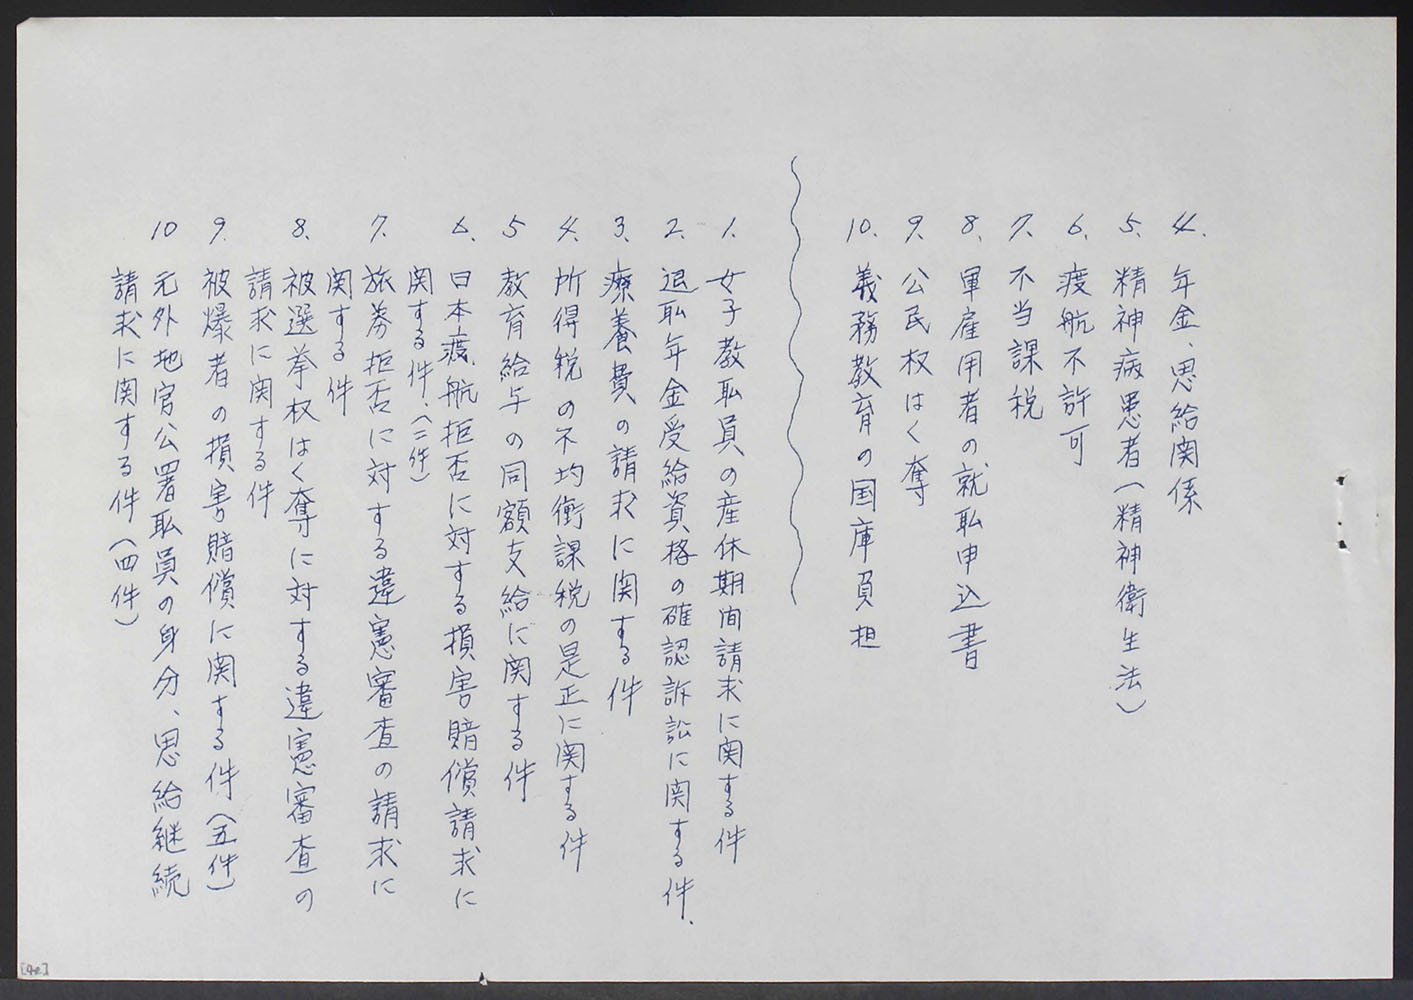 4. 年金、恩給関係
5. 精神病患者（精神衛生法）
6. 渡航不許可
7. 不当課税
8. 軍雇用者の就耺申込書
9. 公民权はく奪
10. 義務教育の国庫負担
1. 女子教耺員の産休期間請求に関する件
2. 退耺年金受給資格の確認訴訟に関する件.
3. 療養費の請求に関する件
4. 所得税の不均衡課税の是正に関する件
5 教育給与の同額支給に関する件
6. 日本渡航拒否に対する損害賠償請求に
関する件.（二件）
7. 旅券拒否に対する違憲審査の請求に
関する件
8. 被選挙权はく奪に対する違憲審査の
請求に関する件
9. 被爆者の損害賠償に関する件（五件）
10 元外地官公署耺員の身分、恩給継続
請求に関する件（四件）